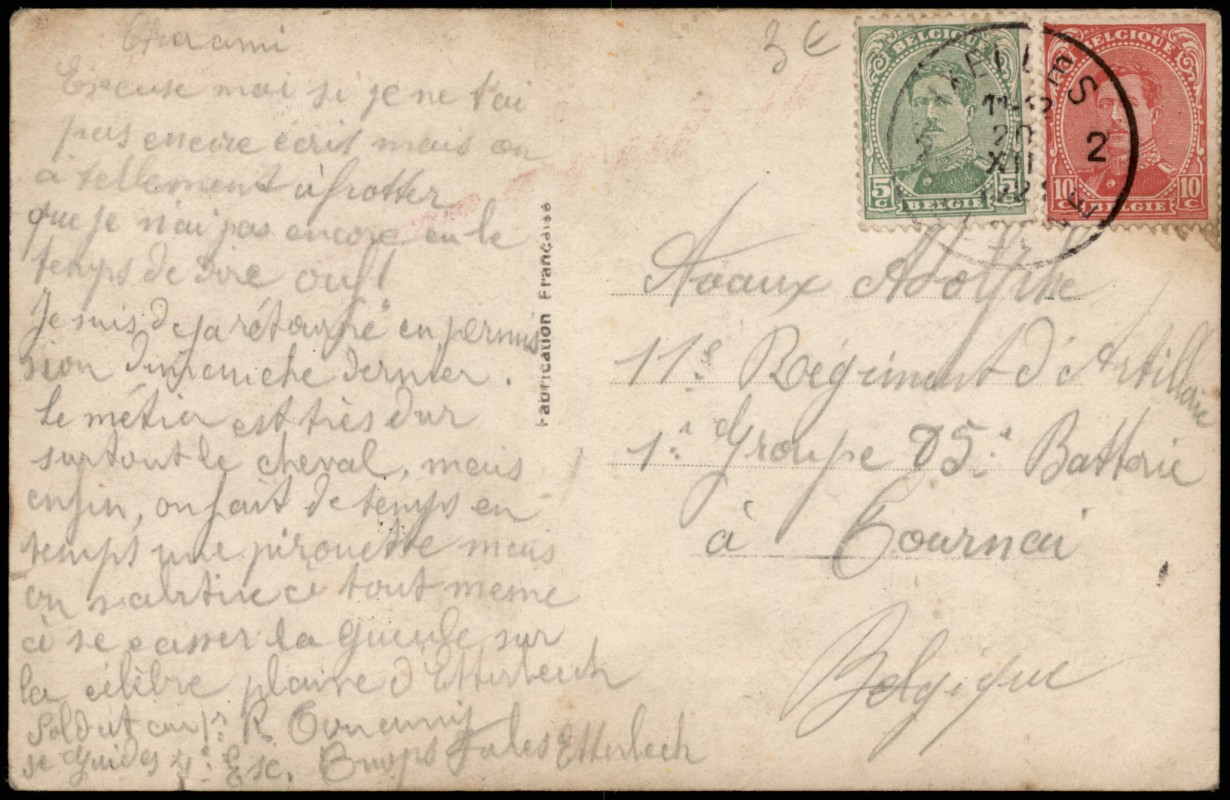 Cher ami
Excuse moi si je ne t'ai
pas encore écrit mais on
a tellement à frotter
que je n'ai pas encore eu le
temps de dire ouf!
Je suis deja rétourné en permis
sion dimenche dernier.
Le métier est très dur
surtout le cheval, mais
enfin, on fait de temps en
temps une pirouette mais
on s'abtue ci tout meme
à se casser la gueule sur
la célibre plaine d'Etterbeeck
Soldat R.
Guides 4e Esc. Jules Etterbeck
3 €
BELGIQUE
5 C 5 C
BELGIE
BELGIQUE
10 C 10 C
BELGIE
ELLES
11-12
20
XII
192
2
Fabrication Française
Avaux Adolphe
11e Régiment d'Artillerie
1r Groupe 85e Batterie
à Tournai
Belgique